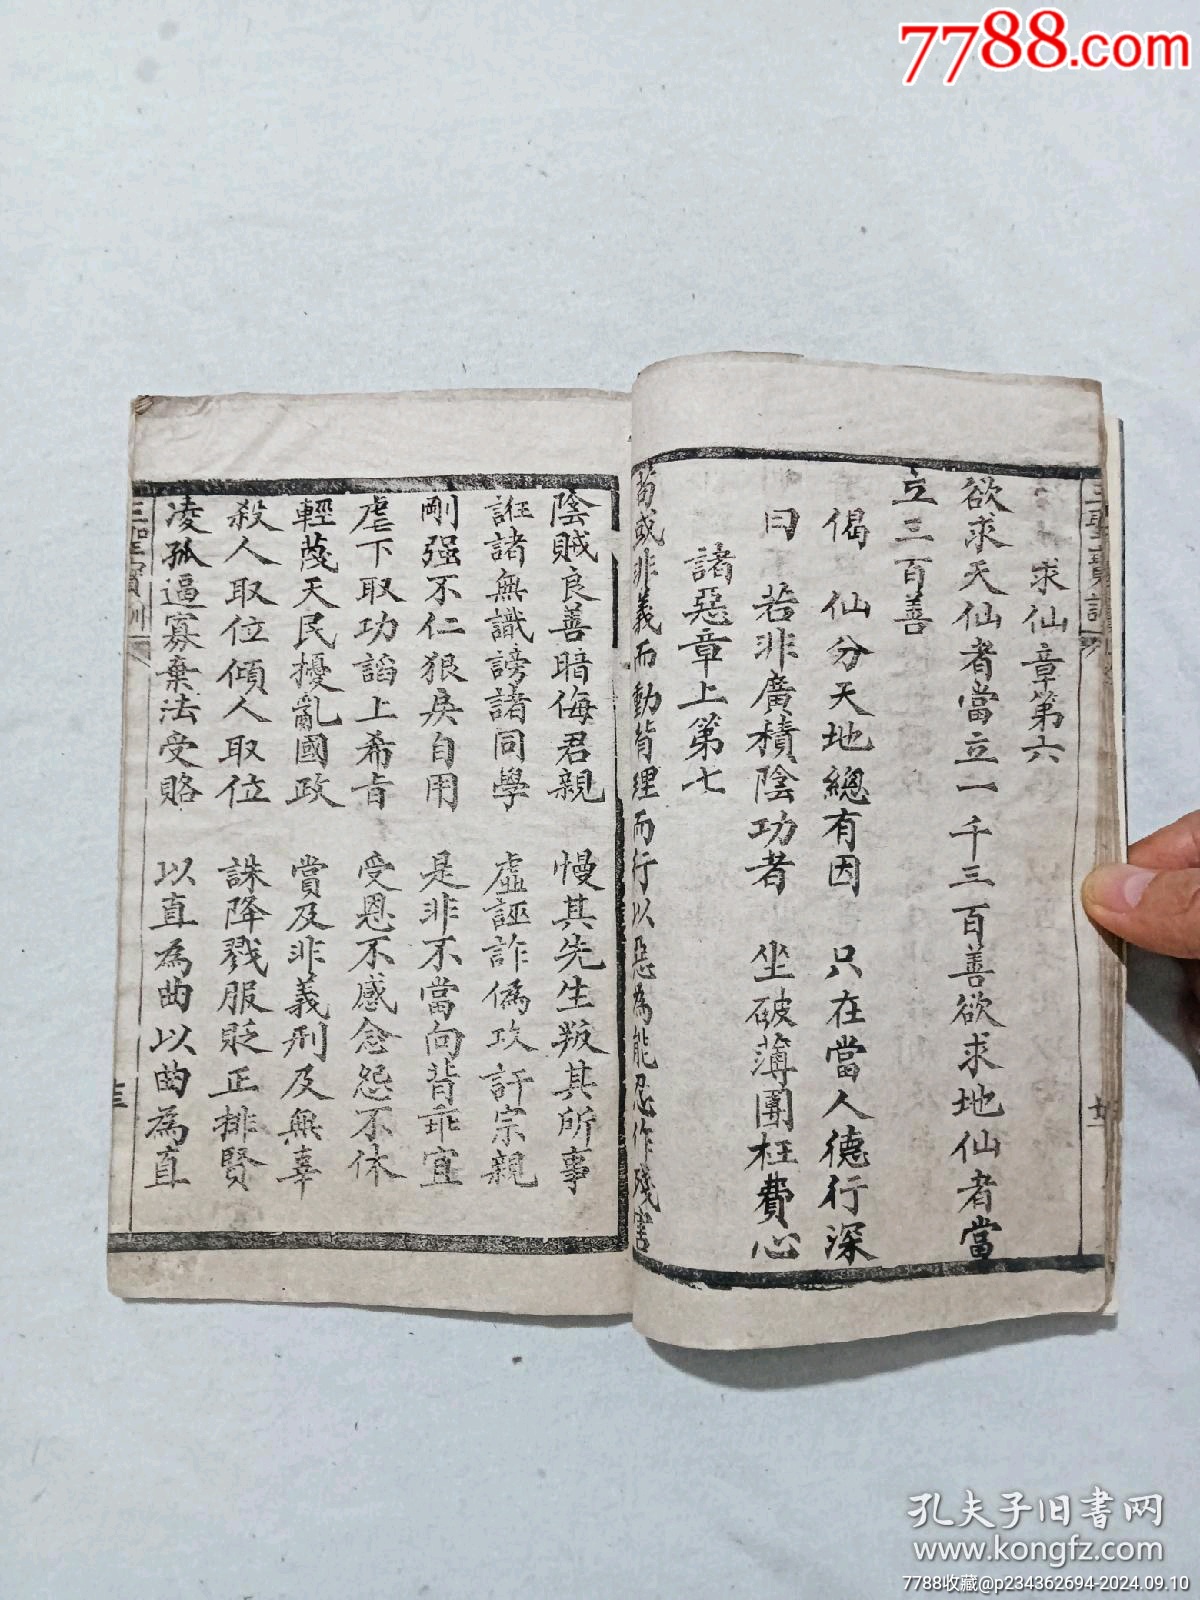 7788.com
三聖寶訓
求仙章第六
欲求天仙者當立一千三百善欲求地仙者當
立三百善
偈 仙分天地總有因 只在當人德行深
曰 若非廣積陰功者 坐破薄團枉費心
諸惡章上第七
苟或非義而動背理而行以惡為能忍作殘害
陰賊良善暗侮君親 慢其先生叛其所事
誑諸無識謗諸同學 虛誣詐偽攻訐宗親
剛强不仁狠戾自用 是非不當向背乖宜
虐下取功謟上希旨 受恩不感念怨不休
輕蔑天民擾亂國政 賞及非義刑及無辜
殺人取位傾人取位 誅降戮服貶正排賢
凌孤逼寡棄法受賂 以直為曲以曲為直
三聖寶訓
孔夫子旧书网
www.kongfz.com
7788收藏@p234362694-2024.09.10